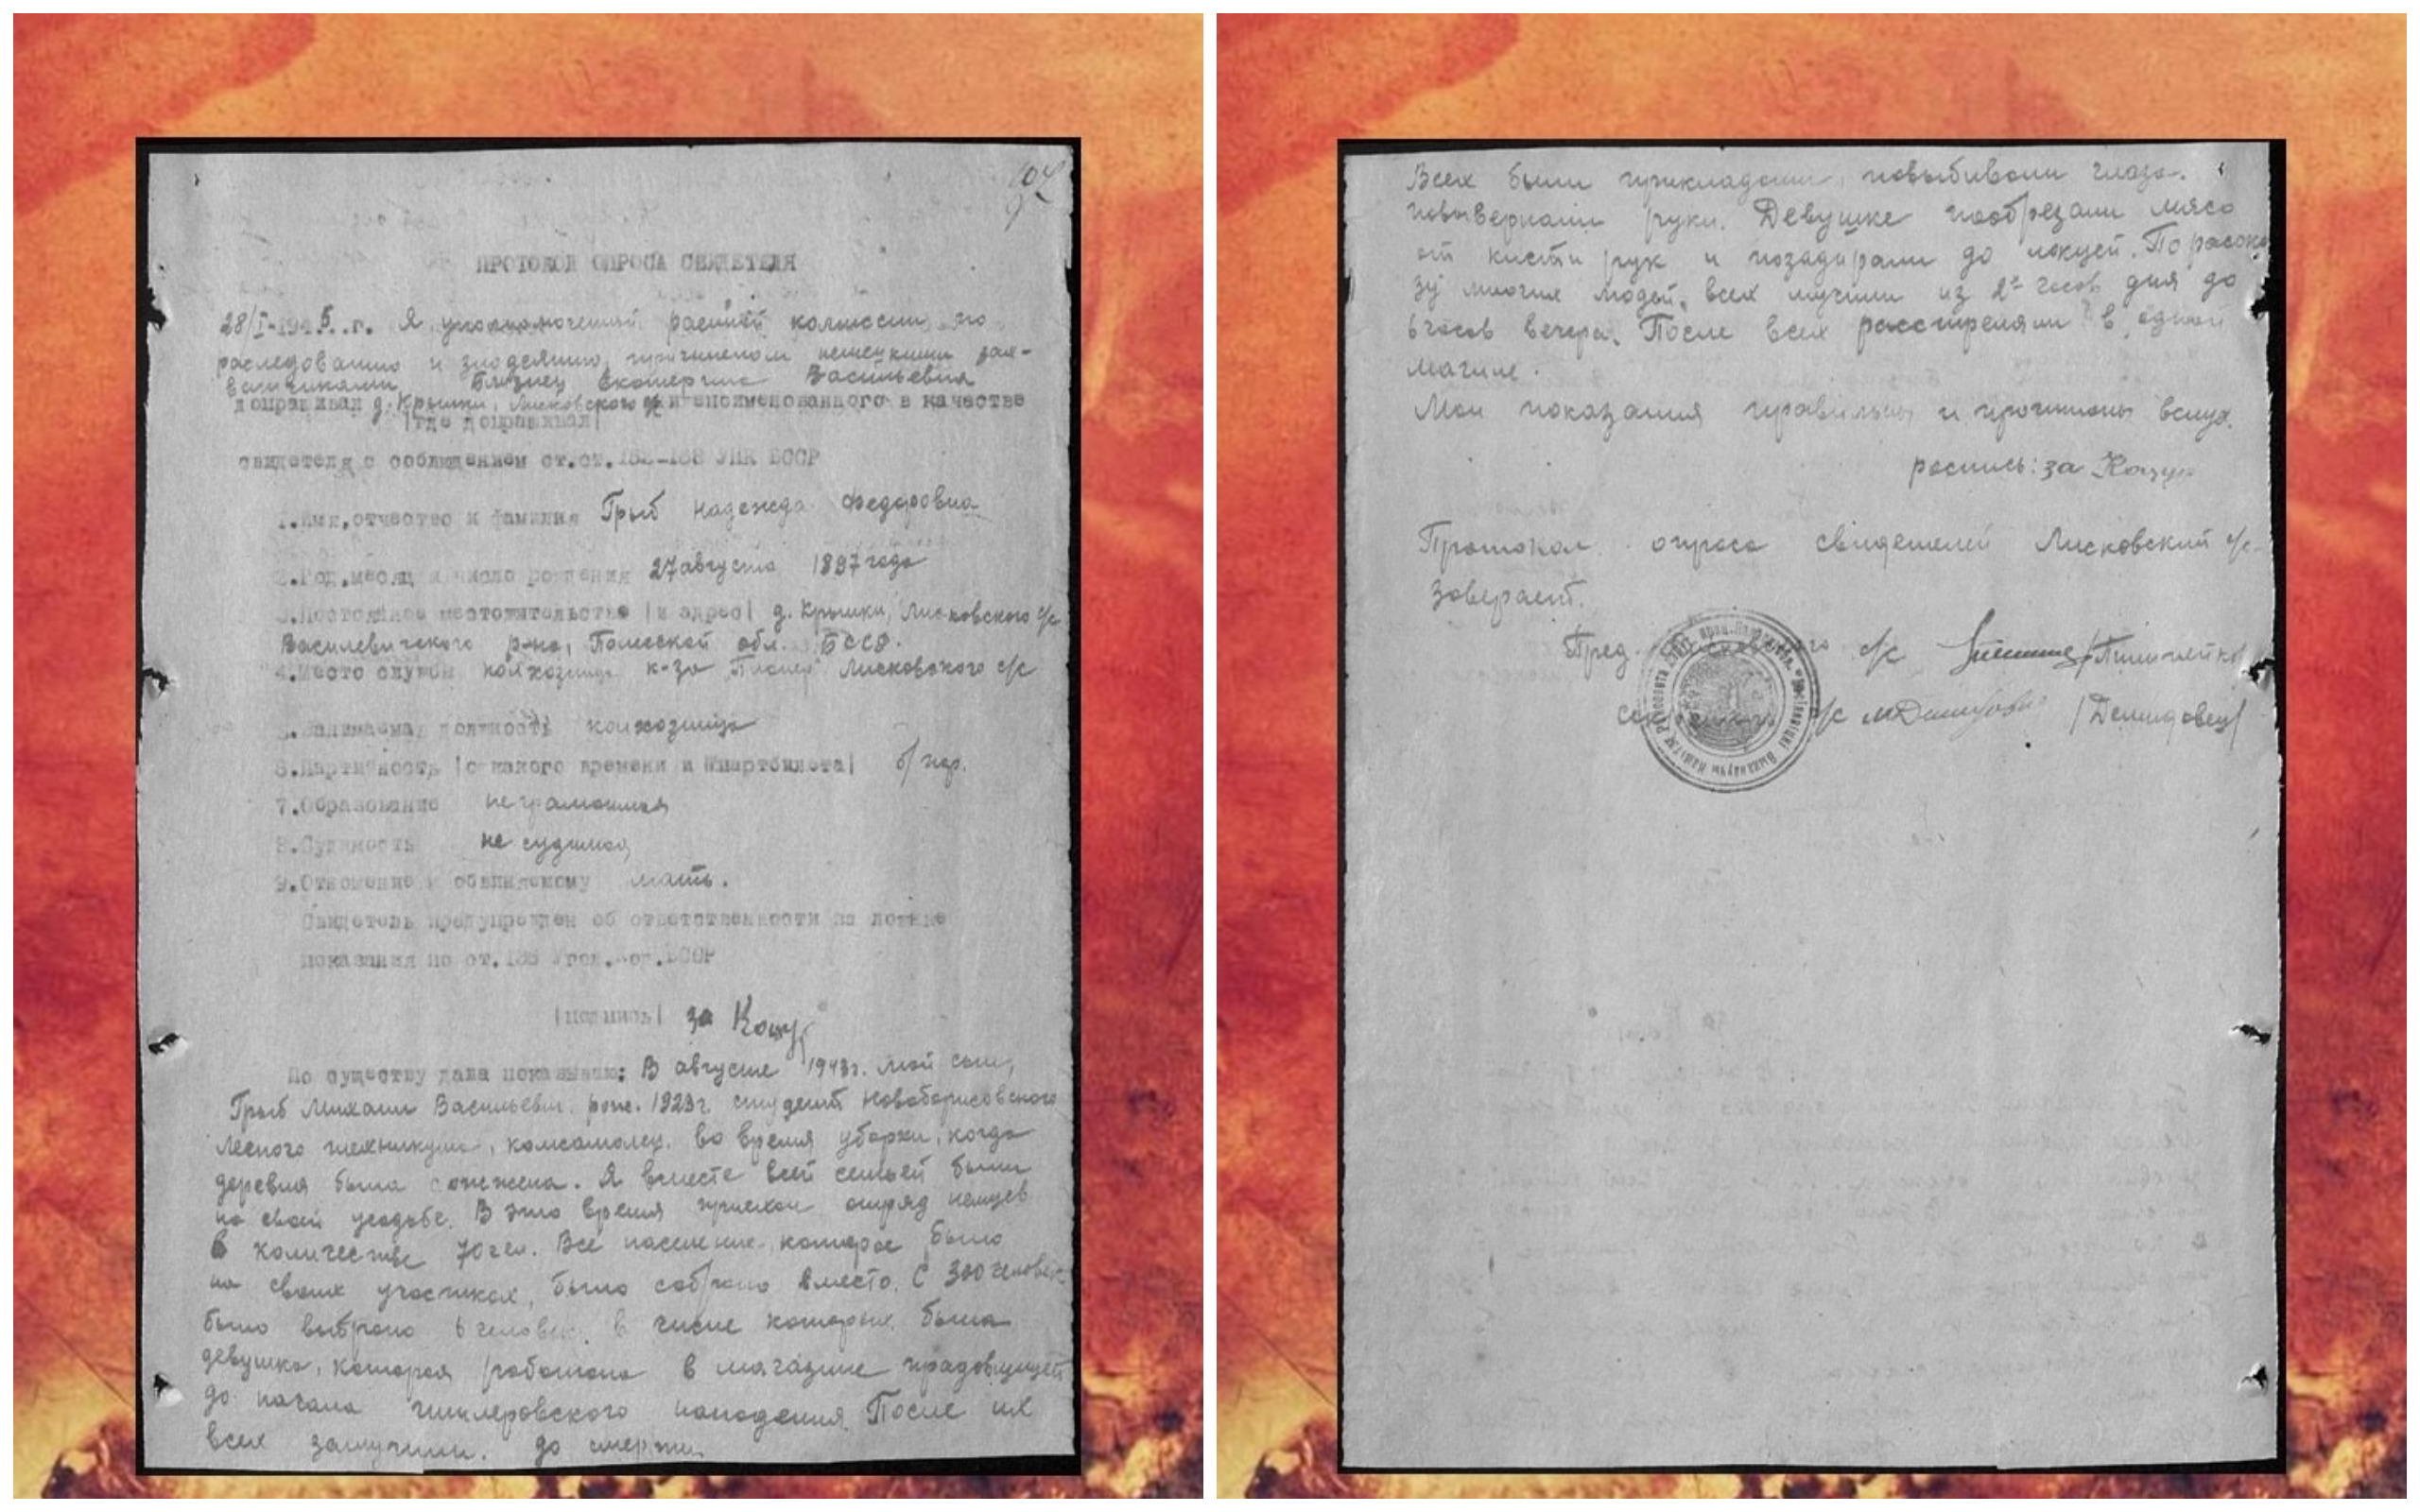 107
9
ПРОТОКОЛ ОПРОСА СВИДЕТЕЛЯ
28/I-1945.г. Я уполномоченный расийой комиссии по
раследованию и злодеянию, причиненом немецкими зах-
ватчиками Близнец Екатерина Васильевна
допрашивал д. Крышки, Лисковского нижепоименованного в качестве
|где допрашивал|
свидетеля с соблюдением ст.ст. УПК БССР
1.Имя,отчество и фамилия Грыб Надежда Федоровна
2.Год,месяц и число рождения 27 августа 1897 года
3.Постоянное местожительство |и адрес| д. Крышки, Лисковского с/с
Василевичского р-на, Полесской обл. БССР.
4.Место службы колхозница к-за "Пионер" Лисковского с/с
5.Занимаемая должность колхозница
6.Партийность |с какого времени и №партбилета| б/пар.
7.Образование неграмотная
8.Судимость не судима
9.Отношение к обвиняемому мать.
Свидетель предупрежден об ответственности за ложные
показания по ст.136 Угол.Код.БССР
|подпись| за Кацур
По существу дела показываю: В августе 1943г. мой сын,
Грыб Михаил Васильевич рож. 1923г. студент Новоборисовского
лесного техникума, комсомолец. во время уборки, когда
деревня была сожжена. Я вместе всей семьей были
на своей усадьбе. В это время приехал отряд немцев
в количестве 70 чел. Все население, которое было
на своих участках, было собрано вместо. С 300 человек
было выбрано 6 человек, в числе которых была
девушка, которая работала в магазине продовщицей
до начала гитлеровского нападения. После их
всех замучили. до смерти.
Всех были прикладами, повыбивали глаза.
повывернали руки. Девушке пообрезали мясо
от кисти рук и позадирали до локцей. По раска-
зу многих людей, всех мучили из 2х часов дня до
6 часов вечера. После всех расстреляли в одной
магиле.
Мои показания правильны и прочитаны вслух.
роспись: за Кацур
Протокол опроса свидетелей Лисковский с/с
заверает.
Пред. Лисковского с/с /Пилипейко/
Секретарь с/с МДемидовец /Демидовец/